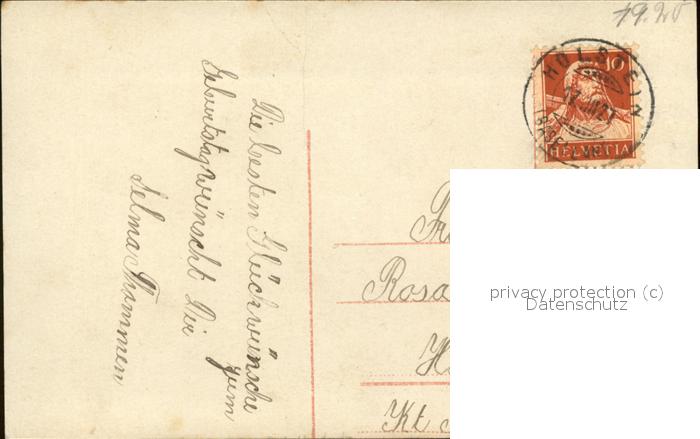 19.2
HÖLSTEIN
10
HELVETIA
Die besten Glückwünsche
zum
Geburtstag wünscht Dir
Selma Thommen
Fr
Rosa
H
Kt
privacy protection (c)
Datenschutz